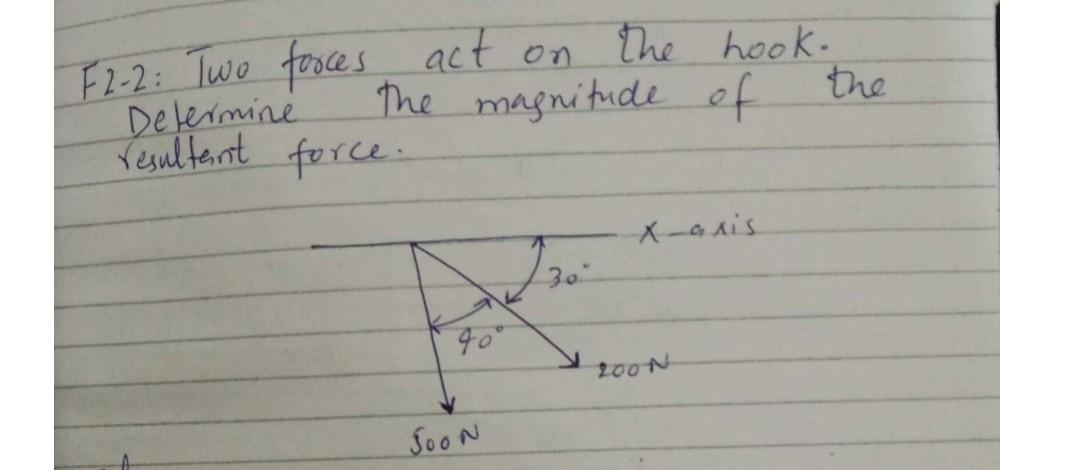 F2-2: Two forces act on the hook.
Determine the magnitude of the
resultant force.
X-axis
30°
40°
200N
500N